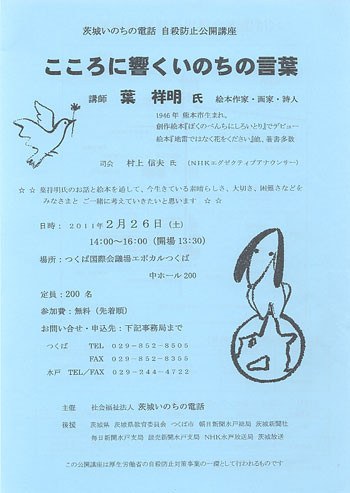 茨城いのちの電話 自殺防止公開講座
こころに響くいのちの言葉
講師 葉 祥明 氏 絵本作家・画家・詩人
1946年 熊本市生まれ。
創作絵本『ぼくのべんちにしろいとり』でデビュー
絵本『地雷ではなく花をください』他、著書多数
司会 村上 信夫 氏 (NHKエグゼクティブアナウンサー)
☆ ☆ 葉祥明氏のお話と絵本を通して、今生きている素晴らしさ、大切さ、困難さなどを
みなさまと ご一緒に考えていきたいと思います ☆ ☆
日時: 2011年2月26日(土)
14:00~16:00 (開場 13:30)
場所:つくば国際会議場エポカルつくば
中ホール200
定員:200 名
参加費:無料(先着順)
お問い合せ・申込先:下記事務局まで
つくば TEL 029-852-8505
FAX 029-852-8355
水戸 TEL/FAX 029-244-4722
主催 社会福祉法人 茨城いのちの電話
後援 茨城県 茨城県教育委員会 つくば市 朝日新聞水戸総局 茨城新聞社
毎日新聞水戸支局 読売新聞水戸支局 NHK水戸放送局 茨城放送
この公開講座は厚生労働省の自殺防止対策事業の一環として行われるものです